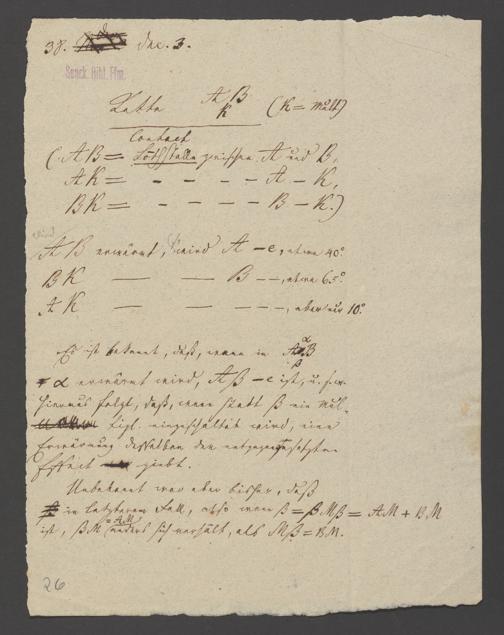 38. Dec. 3.
Senck. Bibl. Ffm.
Kette A B
K (K = mult)
Contact
(AB = Löthstelle zwischen A und B,
AK = - - - - A - K,
BK = - - - - B - K.)
wird
AB erwärmt, wird A -e, etwa 40°
BK — — B --, etwa 65°
AK — — — --, aber nur 10°
Es ist bekannt, daß, wenn in A α B
β
α erwärmt wird, Aβ -e ist, u. s. w.
hieraus folgt, daß, wenn statt β ein Mul-
tipl. eingeschaltet wird, eine
Erwärmung desselben den entgegengesetzten
Effect giebt.
Unbekannt war aber bisher, daß
in letzterem Fall, also wenn β = βMβ = AM + BM
= AM
ist, βM anders sich verhält, als Mβ = BM.
26